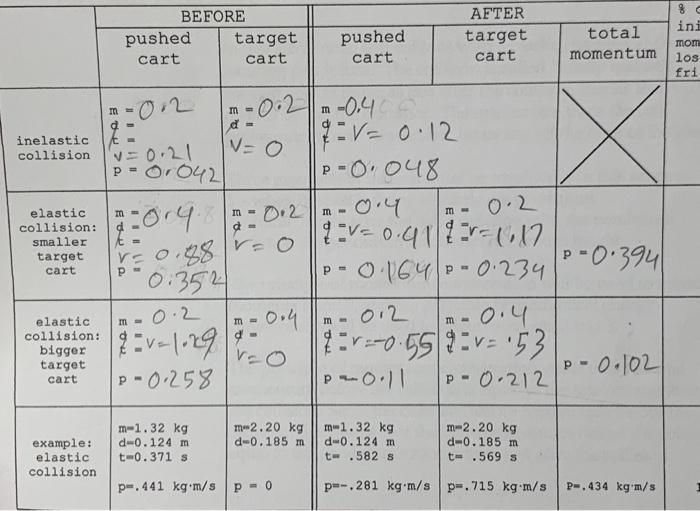 BEFORE
AFTER
pushed cart
target cart
pushed cart
target cart
total momentum
%
ini
mom
los
fri
inelastic collision
m = 0.2
d =
t =
v = 0.21
p = 0.042
m = 0.2
d =
v = 0
m = 0.4
d =
t =
v = 0.12
p = 0.048
elastic collision: smaller target cart
m = 0.4
d =
t =
v = 0.88
p = 0.352
m = 0.2
d =
v = 0
m = 0.4
d =
t =
v = 0.41
p = 0.164
m = 0.2
d =
t =
v = 1.17
p = 0.234
p = 0.394
elastic collision: bigger target cart
m = 0.2
d =
t =
v = 1.29
p = 0.258
m = 0.4
d =
v = 0
m = 0.2
d =
t =
v = -0.55
p = -0.11
m = 0.4
d =
t =
v = .53
p = 0.212
p = 0.102
example: elastic collision
m=1.32 kg
d=0.124 m
t=0.371 s
p=.441 kg·m/s
m=2.20 kg
d=0.185 m
p = 0
m=1.32 kg
d=0.124 m
t= .582 s
p=-.281 kg·m/s
m=2.20 kg
d=0.185 m
t= .569 s
p=.715 kg·m/s
P=.434 kg·m/s